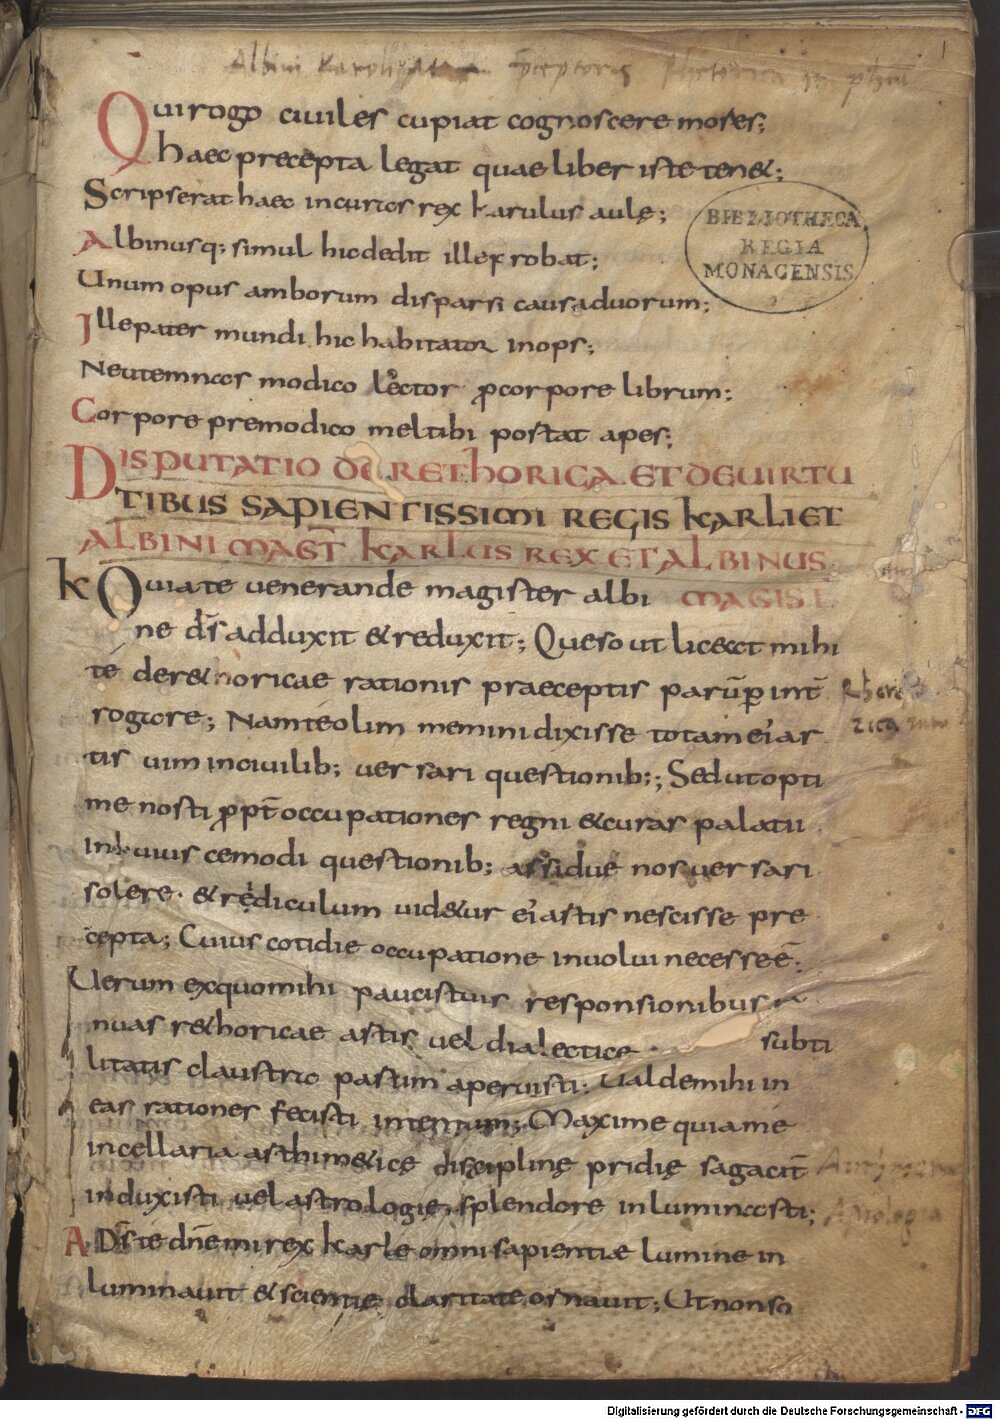 Albini Karoli preceptoris Rhetorica
1
Qui rogo ciuiles cupiat cognoscere mores;
haec precepta legat quae liber iste ten&;
Scripserat haec incurtos rex karulus aulę;
Albinusq; simul hic dedit ille probat;
BIBLIOTHECA
REGIA
MONACENSIS
Unum opus amborum disparsi causa duorum;
Ille pater mundi hic habitator inops;
Neu temncas modico lector ꝓ corpore librum;
Corpore premodico mel tibi postat apes;
DISPUTATIO DE RETHORICA ET DE UIRTU
TIBUS SAPIENTISSIMI REGIS KARLI ET
ALBINI MAGIST KARLUS REX ET ALBINUS
K Quia te uenerande magister albi MAGIST
ne d̄s adduxit & reduxit; Queso ut liceat mihi
te de r&horicae rationis praeceptis parūp int̄
rogare; Nam te olim memini dixisse totam ei ar
tis uim in ciuilib; uersari questionib;; Sed ut opti
me nosti ꝓpt̄ occupationes regni & curas palatii
in huiuscemodi questionib; assidue nos uersari
solere. & rediculum uid&ur ei astis nescisse pre
cepta; Cuius cotidie occupatione inuolui necesse ē;
Uerum ex quo mihi paucis tuis responsionibus
nuas r&horicae astis uel dialectice subti
litatis claustria pastim aperuisti; Ualde mihi in
eas rationes fecisti intentum; Maxime quia me
in cellaria asthim&icę disciplinę pridię sagacit̄
induxisti uel astrologię splendore inluminasti;
A D̄s te dn̄e mi rex karle omni sapientiae lumine in
luminauit & scientię claritate ornauit; Ut non so
Digitalisierung gefördert durch die Deutsche Forschungsgemeinschaft - DFG